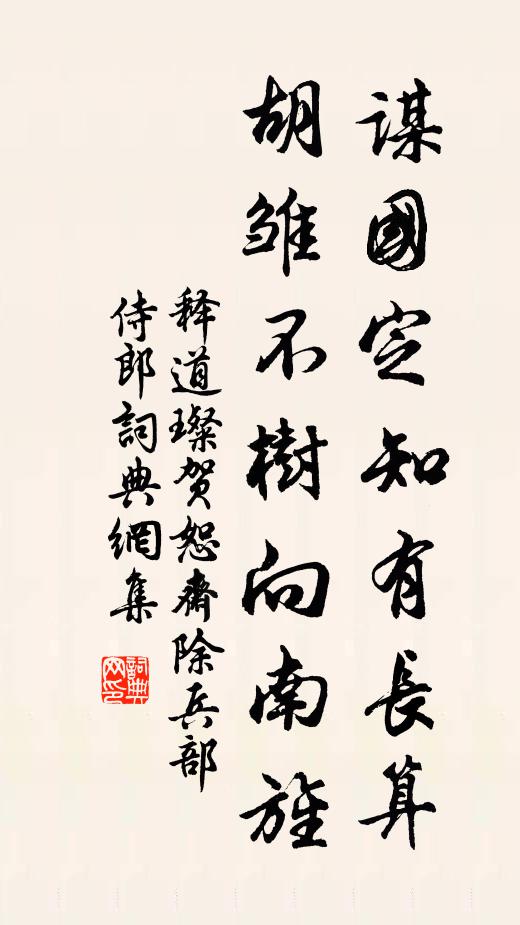 謀國定知有長算
胡雏不樹向南旌
释道璨贺恕齋除兵部
侍郎詞典網集
詞典网印